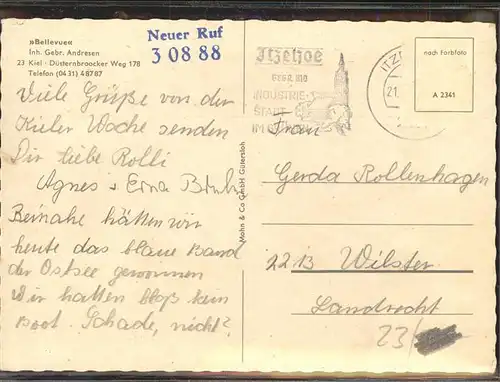 »Bellevue«
Inh. Gebr. Andresen
23 Kiel · Düsternbroocker Weg 178
Telefon (0431) 48787
Neuer Ruf
3 08 88
Viele Grüße von der
Kieler Woche senden
Dir liebe Rolli
Agnes + Erna
Beinahe hätten wir
heute das blaue Band
der Ostsee gewonnen
Wir hatten bloß kein
Boot. Schade, nicht?
Mohn & Co GmbH Gütersloh
Itzehoe
INDUSTRIE-
STADT
IM
ITZ
21.
nach Farbfoto
A 2341
Frau
Gerda Rollenhagen
2213 Wilster
Landrecht
23/